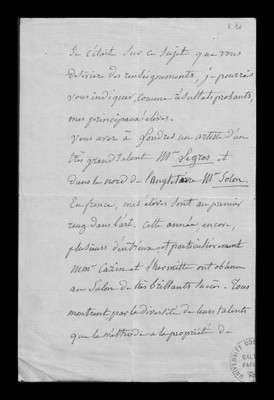 Si c'était sur ce sujet que vous
désiriez des renseignements, je pourrais
vous indiquer, comme résultats probants,
mes principaux élèves.
Vous avez à Londres un artiste d'un
très grand talent Mr Legros et
dans le nord de l'Angletaire Mr Solon.
En france, mes élèves sont au premier
rang dans l'art. Cette année encore,
plusieurs d'entr'eux et particulièrement
Mmrs Cazin et Lhermitte ont obtenu
au Salon de très brillants succès. Tous
montrent par la diversité de leurs talents
que la méthode a la propriété de